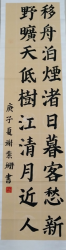 移舟泊煙渚日暮客愁新
野曠天低樹江清月近人
庚子夏谢書